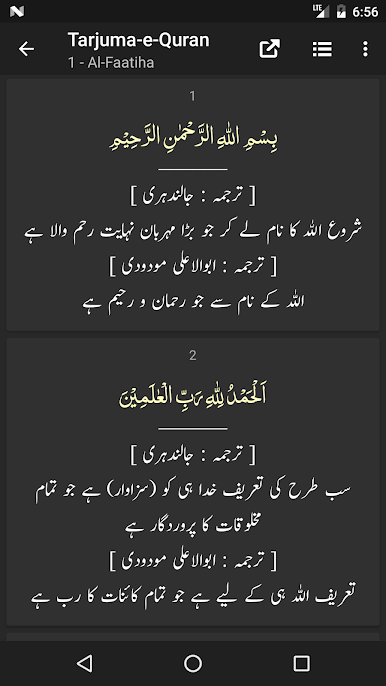 LTE 6:56
Tarjuma-e-Quran
1 - Al-Faatiha
1
بِسْمِ اللّٰهِ الرَّحْمٰنِ الرَّحِيْمِ
[ ترجمہ : جالندہری ]
شروع الله کا نام لے کر جو بڑا مہربان نہایت رحم والا ہے
[ ترجمہ : ابوالاعلی مودودی ]
الله کے نام سے جو رحمان و رحیم ہے
2
اَلْحَمْدُ لِلّٰهِ رَبِّ الْعٰلَمِيْنَ
[ ترجمہ : جالندہری ]
سب طرح کی تعریف خدا ہی کو (سزاوار) ہے جو تمام
مخلوقات کا پروردگار ہے
[ ترجمہ : ابوالاعلی مودودی ]
تعریف الله ہی کے لیے ہے جو تمام کائنات کا رب ہے